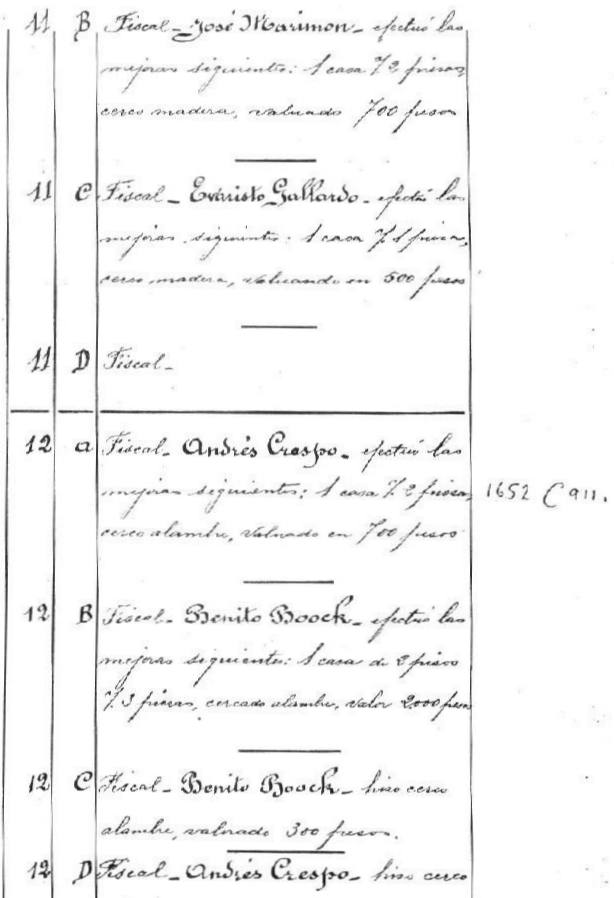 11 B Fiscal - José Marimon - efectuó las
mejoras siguientes: 1 casa 2 piezas,
cerco madera, valuado 700 pesos
11 C Fiscal - Evaristo Gallardo - efectuó las
mejoras siguientes: 1 casa 1 pieza,
cerco madera, valuando en 500 pesos
11 D Fiscal -
12 a Fiscal - Andrés Crespo - efectuó las
mejoras siguientes: 1 casa 2 piezas,
1652 C 911.
cerco alambre, valuado en 700 pesos
12 B Fiscal - Benito Boock - efectuó las
mejoras siguientes: 1 casa de 2 pisos
3 piezas, cercado alambre, valor 2.000 pesos
12 C Fiscal - Benito Boock - hiso cerco
alambre, valuado 300 pesos.
12 D Fiscal - Andrés Crespo - hiso cerco